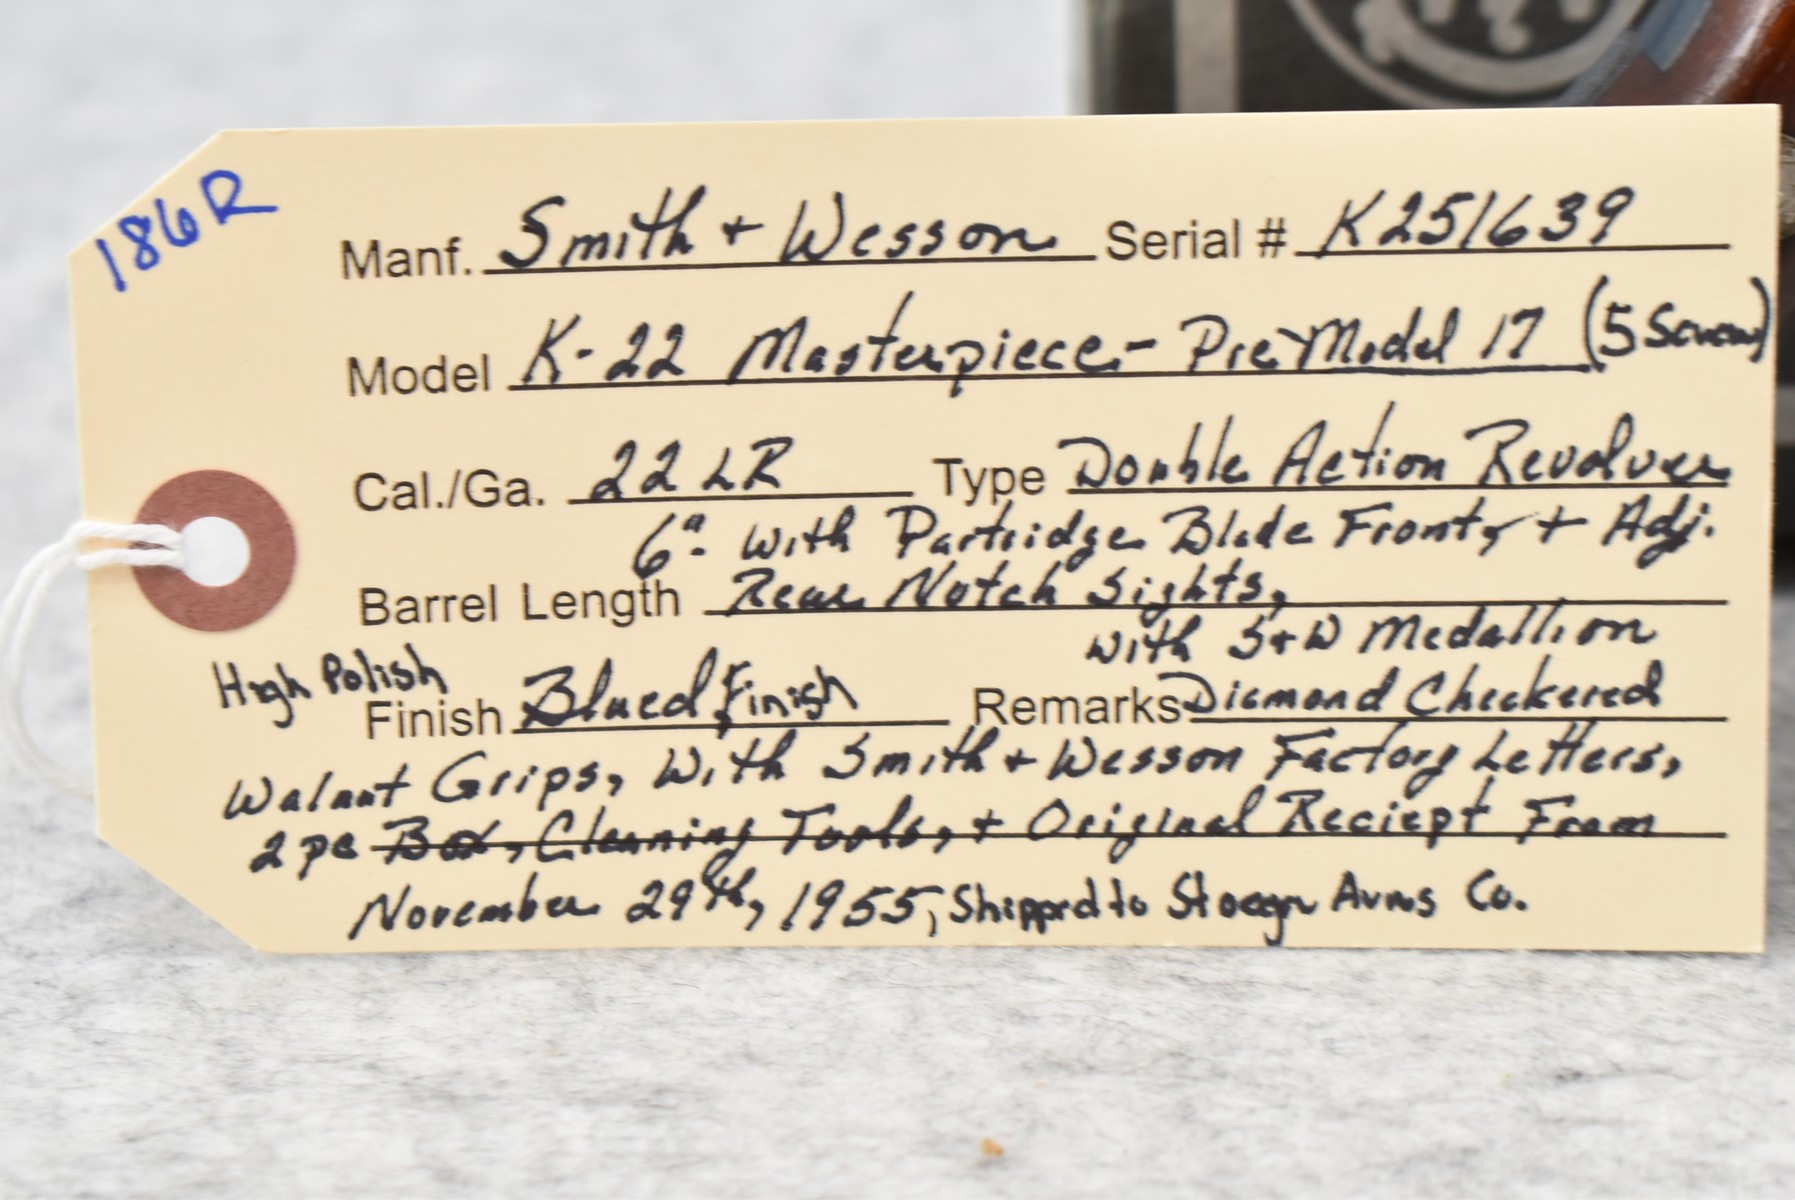 186R
Manf. Smith + Wesson Serial # K251639
Model K-22 Masterpiece - Pre-Model 17 (5 Screw)
Cal./Ga. 22 LR Type Double Action Revolver
6" with Partridge Blade Front, + Adj.
Barrel Length Rear Notch Sights,
with S+W Medallion
High Polish
Finish Blued Finish Remarks Diamond Checkered
Walnut Grips, With Smith + Wesson Factory Letters,
2 pc Box, Cleaning Tools, + Original Reciept From
November 29th, 1955, Shipped to Stoeger Arms Co.